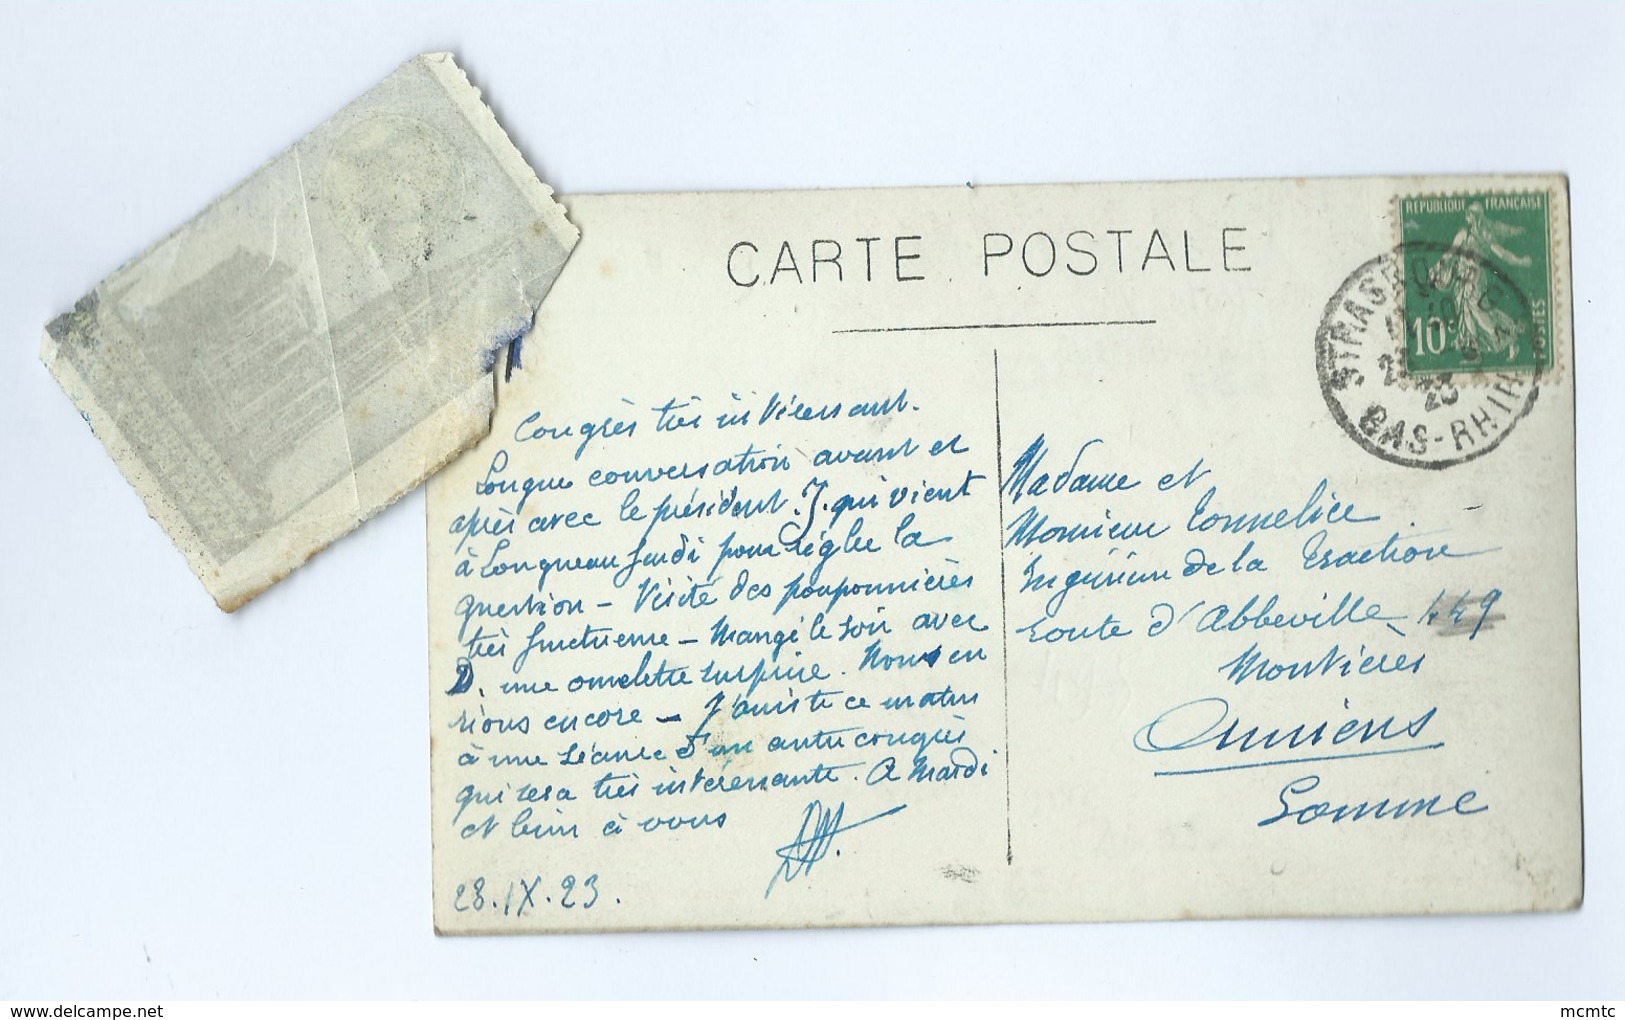 CARTE POSTALE
REPUBLIQUE FRANÇAISE
10c
POSTES
STRASBOURG
BAS-RHIN
Congrès très intéressant.
Longue conversation avant et
après avec le président. J. qui vient
à Longueau jeudi pour régler la
question – Visite des pouponnières
très fructueuse – Mangé le soir avec
D. une omelette surprise. Nous en
rions encore – J'assiste ce matin
à une séance d'un autre congrès
qui sera très intéressante. A Mardi
et bien à vous
28.IX.23.
Madame et
Monsieur
Ingénieur de la Traction
route d'Abbeville 449
Montières
Amiens
Somme
mcmtc